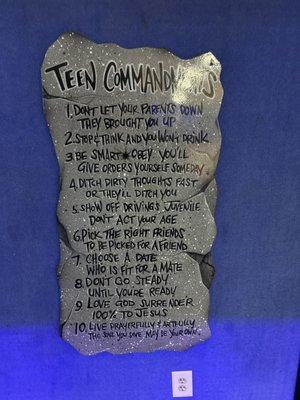 TEEN COMMANDMENTS
1. DON'T LET YOUR PARENTS DOWN
THEY BROUGHT YOU UP
2. STOP & THINK AND YOU WON'T DRINK
3. BE SMART * OBEY YOU'LL
GIVE ORDERS YOURSELF SOMEDAY
4. DITCH DIRTY THOUGHTS FAST
OR THEY'LL DITCH YOU
5. SHOW OFF DRIVINGS JUVENILE
DON'T ACT YOUR AGE
6. PICK THE RIGHT FRIENDS
TO BE PICKED FOR A FRIEND
7. CHOOSE A DATE
WHO IS FIT FOR A MATE
8. DON'T GO STEADY
UNTIL YOU'RE READY
9. LOVE GOD SURRENDER
100% TO JESUS
10. LIVE PRAYERFULLY & ARTFULLY
THE SOUL YOU SAVE MAY BE YOUR OWN